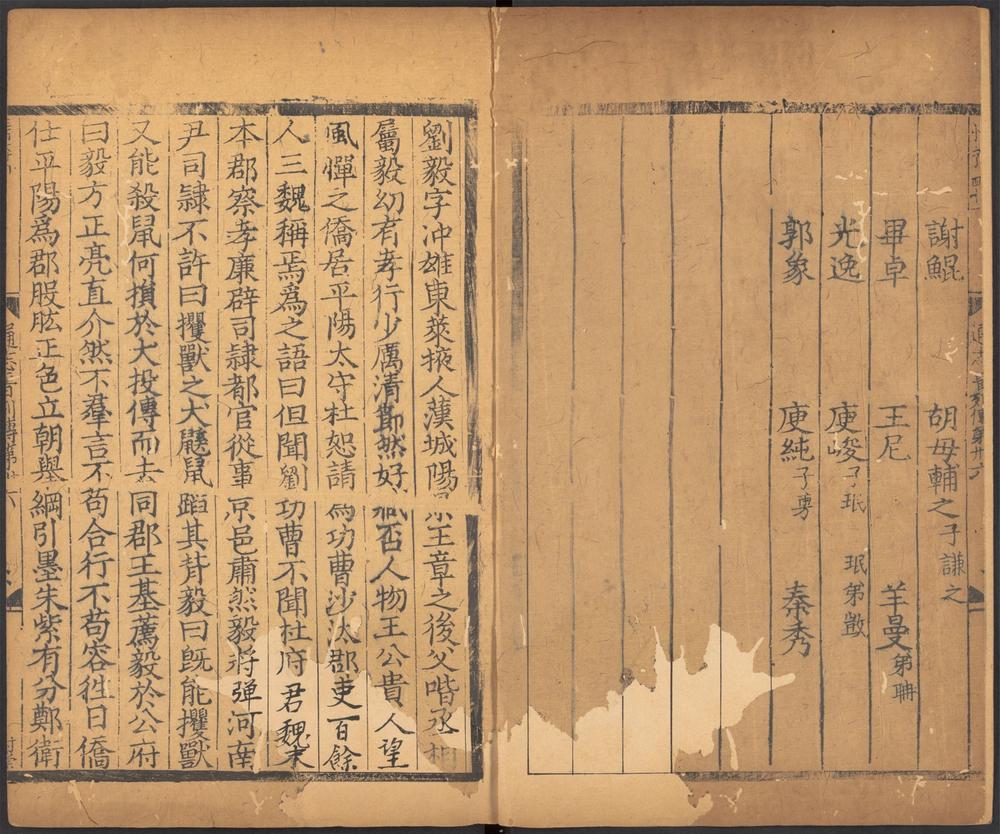 謝鯤 胡毋輔之 子謙之
畢卓 王尼 羊曼 弟聃
光逸 庾峻 子珉 珉弟敳
郭象 庾純 子旉 秦秀
劉毅字冲雄東萊掖人漢城陽景王章之後父喈丞相
屬毅幼有孝行少厲清節然好臧否人物王公貴人望
風憚之僑居平陽太守杜恕請爲功曹沙汰郡吏百餘
人三魏稱焉爲之語曰但聞劉功曹不聞杜府君魏末
本郡察孝廉辟司隷都官從事京邑肅然毅將彈河南
尹司隷不許曰攫獸之犬鼷鼠蹈其背毅曰旣能攫獸
又能殺鼠何損於犬投傳而去同郡王基薦毅於公府
曰毅方正亮直介然不羣言不苟合行不苟容徃日僑
仕平陽爲郡股肱正色立朝舉綱引墨朱紫有分鄭衛